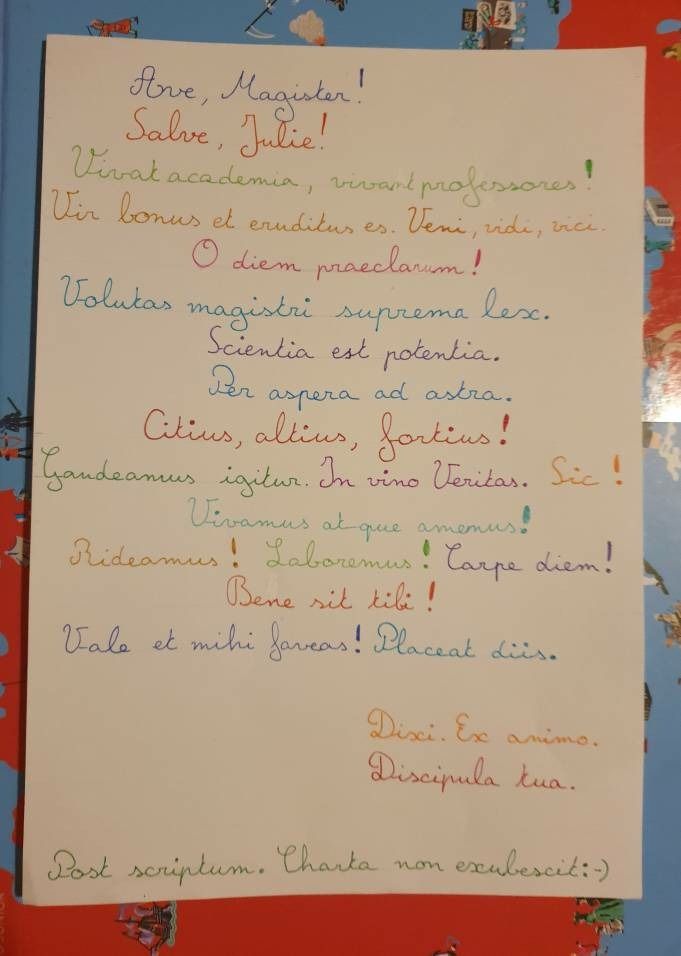 Ave, Magister!
Salve, Julie!
Vivat academia, vivant professores!
Vir bonus et eruditus es. Veni, vidi, vici.
O diem praeclarum!
Volutas magistri suprema lex.
Scientia est potentia.
Per aspera ad astra.
Citius, altius, fortius!
Gaudeamus igitur. In vino Veritas. Sic!
Vivamus atque amemus!
Rideamus! Laboremus! Carpe diem!
Bene sit tibi!
Vale et mihi faveas! Placeat diis.
Dixi. Ex animo.
Discipula tua.
Post scriptum. Charta non exubescit:-)